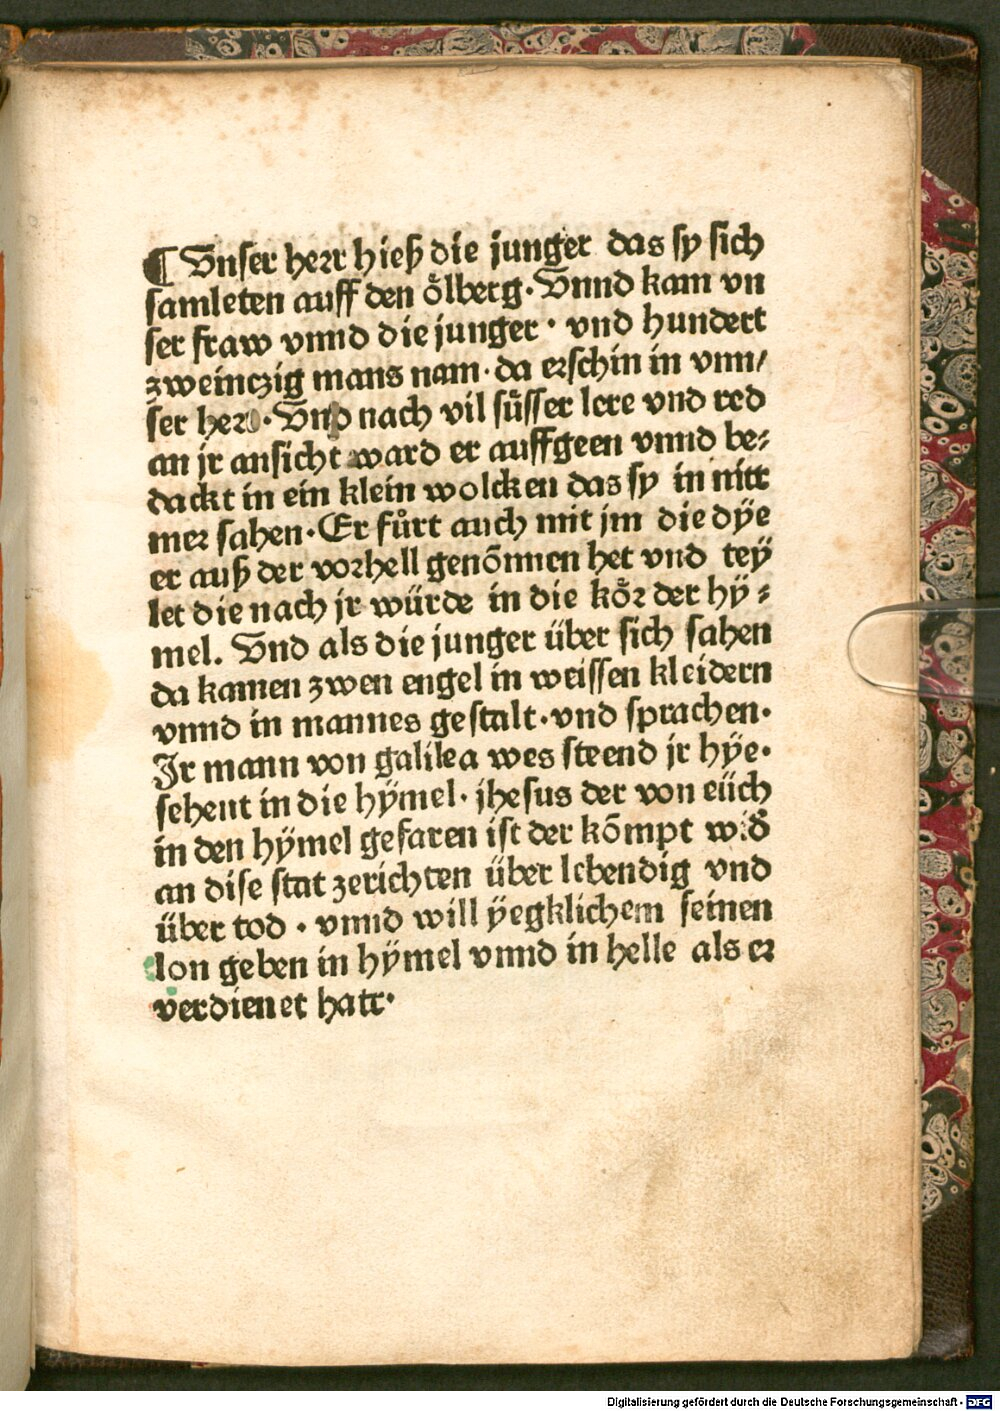 ¶ Vnser herr hieß die junger das sy sich
samleten auff den oͤlberg · Vnnd kam vn
ser fraw vnnd die junger · vnd hundert
zweinczig mans nam · da erschin in vnn/
ser herr · Vnd nach vil suͤsser lere vnd red
an jr ansicht ward er auffgeen vnnd be⸗
dackt in ein klein wolcken das sy in nitt
mer sahen · Er fuͦrt auch mit jm die dÿe
er auß der vorhell genōmen het vnd teÿ
let die nach jr würde in die koͤr der hÿ⸗
mel. Vnd als die junger über sich sahen
da kamen zwen engel in weissen kleidern
vnnd in mannes gestalt · vnd sprachen ·
Jr mann von galilea wes steend jr hÿe ·
sehent in die hÿmel · jhesus der von eüch
in den hÿmel gefaren ist der kōmpt wid̄
an dise stat zerichten über lebendig vnd
über tod · vnnd will ÿegklichem seinen
lon geben in hÿmel vnnd in helle als er
verdienet hatt ·
Digitalisierung gefördert durch die Deutsche Forschungsgemeinschaft - DFG